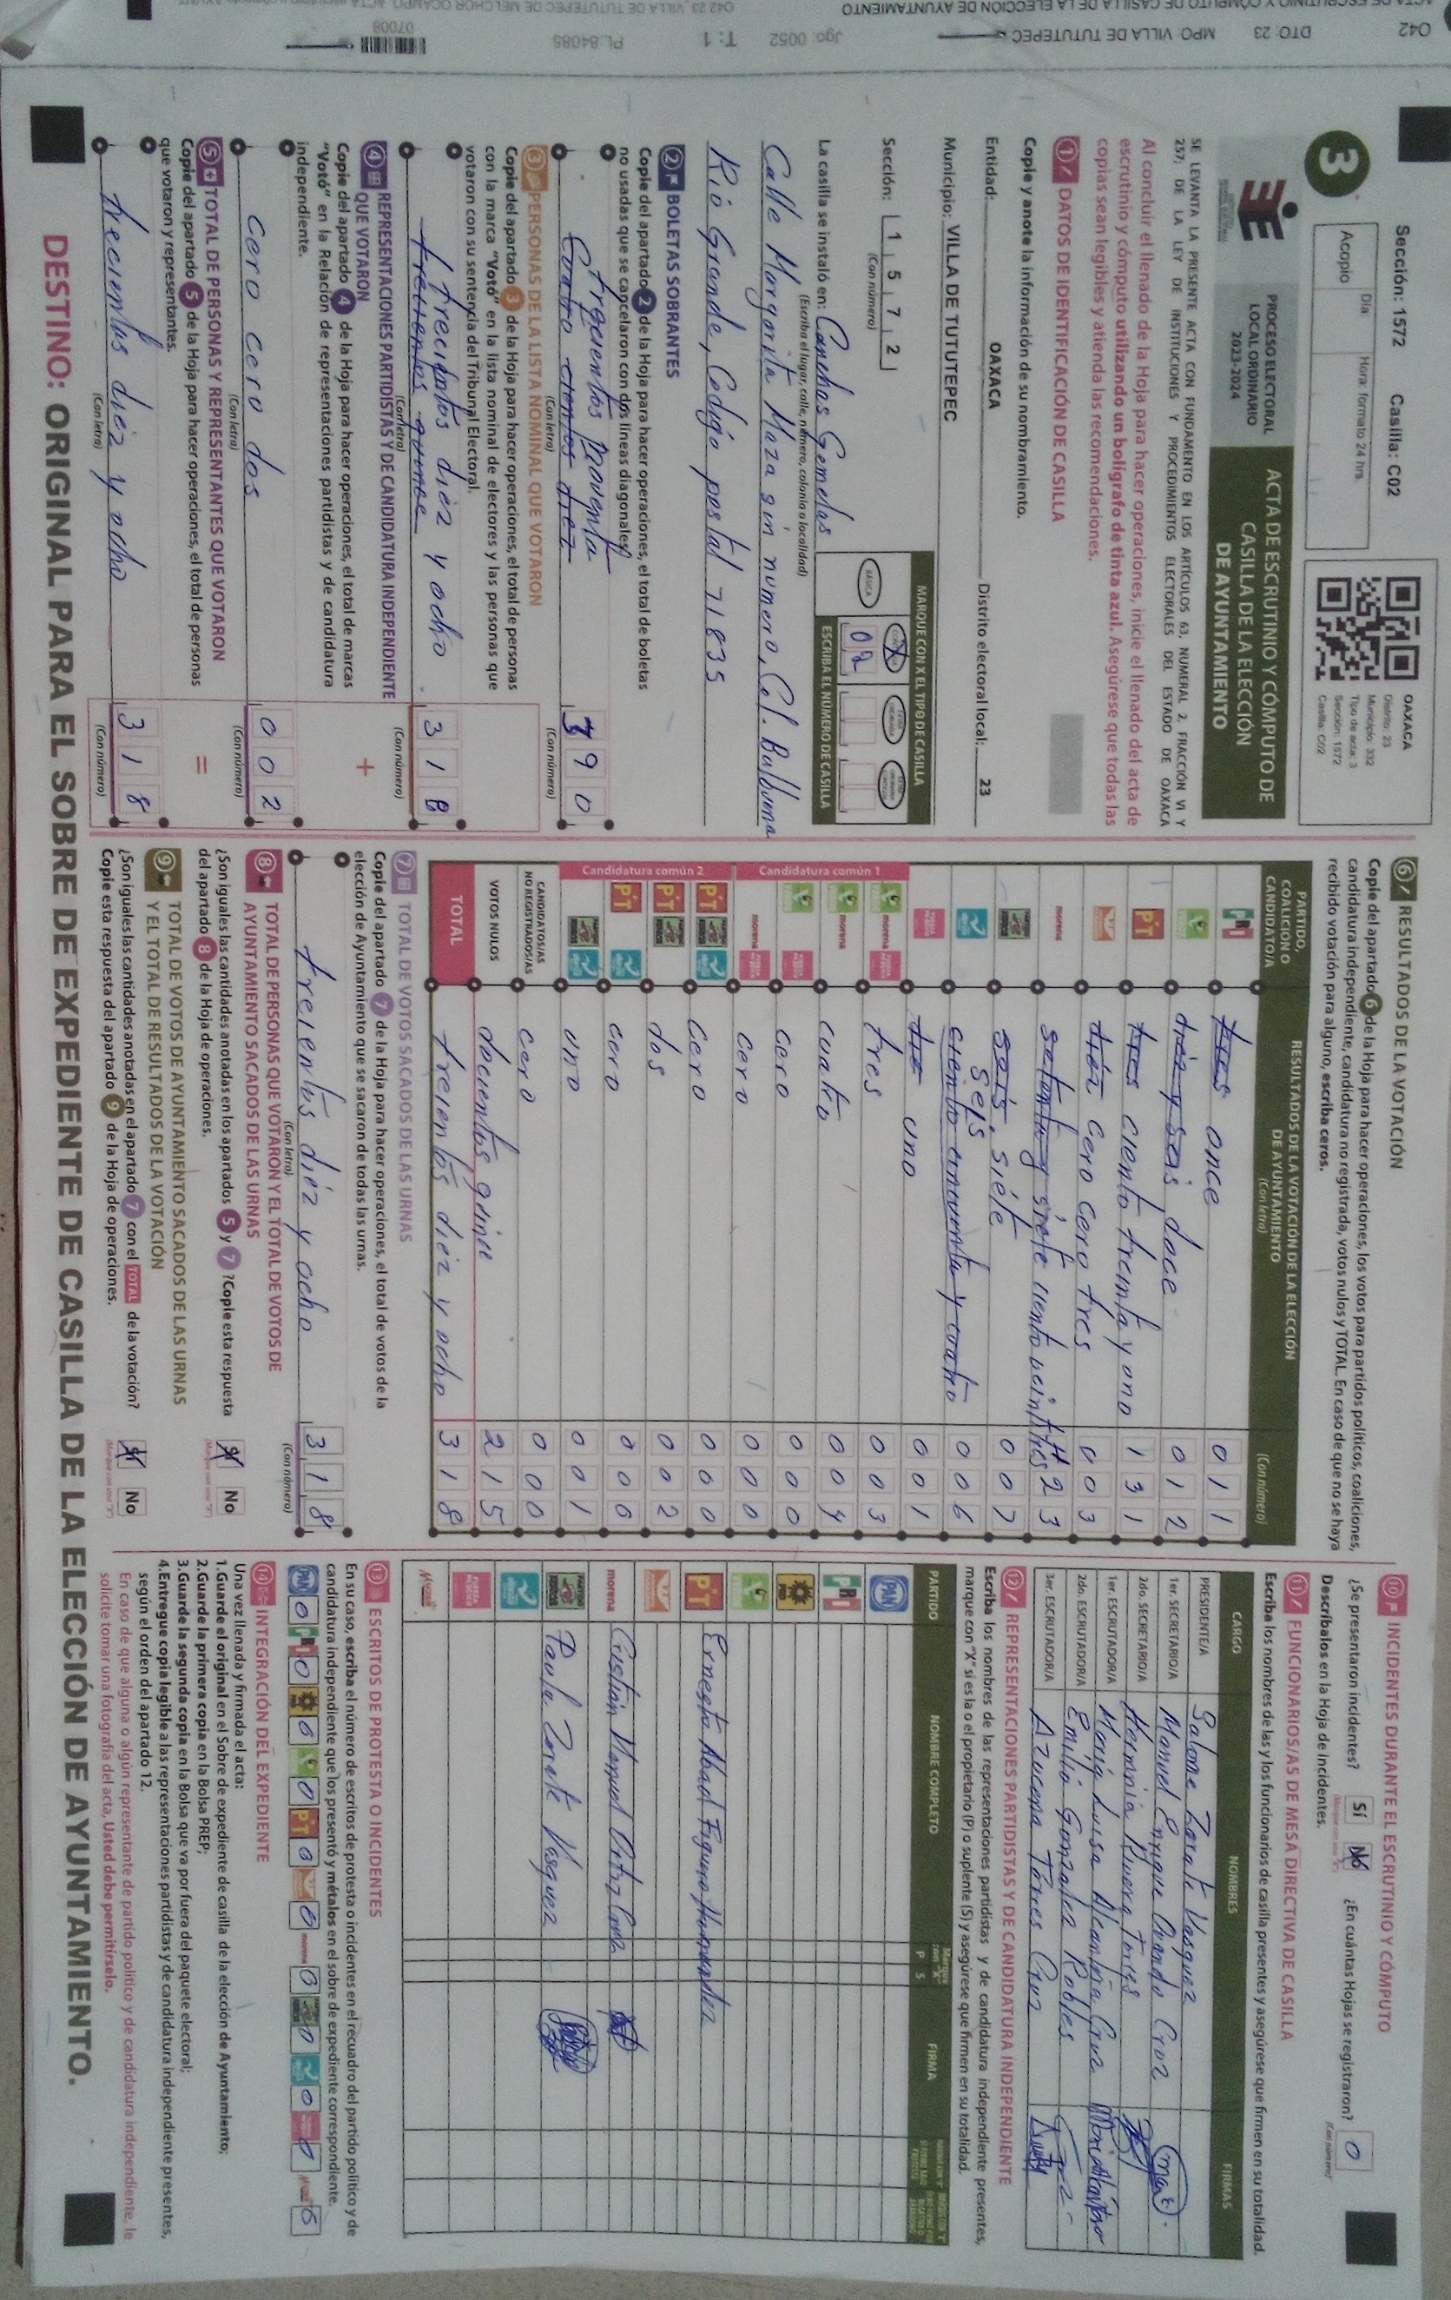 Sección: 1572 Casilla: C02
3
Acopio
Día Hora: formato 24 hrs.
OAXACA
Distrito: 23
Municipio: 332
Tipo de acta: 3
Sección: 1572
Casilla: C02
PROCESO ELECTORAL
LOCAL ORDINARIO
2023-2024
ACTA DE ESCRUTINIO Y CÓMPUTO DE
CASILLA DE LA ELECCIÓN
DE AYUNTAMIENTO
SE LEVANTA LA PRESENTE ACTA CON FUNDAMENTO EN LOS ARTÍCULOS 63, NUMERAL 2, FRACCIÓN VI Y
257, DE LA LEY DE INSTITUCIONES Y PROCEDIMIENTOS ELECTORALES DEL ESTADO DE OAXACA
Al concluir el llenado de la Hoja para hacer operaciones, inicie el llenado del acta de
escrutinio y cómputo utilizando un bolígrafo de tinta azul. Asegúrese que todas las
copias sean legibles y atienda las recomendaciones.
1 DATOS DE IDENTIFICACIÓN DE CASILLA
Copie y anote la información de su nombramiento.
Entidad: OAXACA Distrito electoral local: 23
Municipio: VILLA DE TUTUTEPEC
Sección: 1 5 7 2
(Con número)
MARQUE CON X EL TIPO DE CASILLA
BÁSICA
02
ESCRIBA EL NÚMERO DE CASILLA
La casilla se instaló en: Canchas Gemelas
(Escriba el lugar, calle, número, colonia o localidad)
Calle Margarita Maza sin numero, Col. Bulbuena
Río Grande, Codigo postal 71835
2 BOLETAS SOBRANTES
Copie del apartado 2 de la Hoja para hacer operaciones, el total de boletas
no usadas que se cancelaron con dos líneas diagonales.
trescientos noventa
Cuatro cientos diez
390
(Con letra) (Con número)
3 PERSONAS DE LA LISTA NOMINAL QUE VOTARON
Copie del apartado 3 de la Hoja para hacer operaciones, el total de personas
con la marca "Votó" en la lista nominal de electores y las personas que
votaron con su sentencia del Tribunal Electoral.
trecientos diez y ocho
trecientos quince
318
(Con letra) (Con número)
4 REPRESENTACIONES PARTIDISTAS Y DE CANDIDATURA INDEPENDIENTE
QUE VOTARON
+
Copie del apartado 4 de la Hoja para hacer operaciones, el total de marcas
"Votó" en la Relación de representaciones partidistas y de candidatura
independiente.
cero cero dos 002
(Con letra) (Con número)
5 TOTAL DE PERSONAS Y REPRESENTANTES QUE VOTARON
=
Copie del apartado 5 de la Hoja para hacer operaciones, el total de personas
que votaron y representantes.
trecientos diez y ocho 318
(Con letra) (Con número)
6 RESULTADOS DE LA VOTACIÓN
Copie del apartado 6 de la Hoja para hacer operaciones, los votos para partidos políticos, coaliciones,
candidatura independiente, candidatura no registrada, votos nulos y TOTAL. En caso de que no se haya
recibido votación para alguno, escriba ceros.
PARTIDO,
COALICION O
CANDIDATO/A
RESULTADOS DE LA VOTACIÓN DE LA ELECCIÓN
DE AYUNTAMIENTO
(Con letra) (Con número)
PRI tres once 011
diez y seis doce 012
PT tres ciento treinta y uno 131
diéz cero cero tres 003
morena setenta y siete ciento veintitres 123
seis siete 007
seis
ciento cincuenta y cuatro 006
tre uno 001
Candidatura común 1
morena tres 003
morena cuatro 004
cero 000
morena cero 000
Candidatura común 2
PT cero 000
PT dos 002
PT cero 000
uno 001
CANDIDATOS/AS
NO REGISTRADOS/AS cero 000
VOTOS NULOS docientos quince 215
TOTAL trecientos diez y ocho 318
7 TOTAL DE VOTOS SACADOS DE LAS URNAS
Copie del apartado 7 de la Hoja para hacer operaciones, el total de votos de la
elección de Ayuntamiento que se sacaron de todas las urnas.
trecientos diez y ocho 318
(Con letra) (Con número)
8 TOTAL DE PERSONAS QUE VOTARON Y EL TOTAL DE VOTOS DE
AYUNTAMIENTO SACADOS DE LAS URNAS
¿Son iguales las cantidades anotadas en los apartados 5 y 7 ?Copie esta respuesta
del apartado 8 de la Hoja de operaciones.
Sí No
9 TOTAL DE VOTOS DE AYUNTAMIENTO SACADOS DE LAS URNAS
Y EL TOTAL DE RESULTADOS DE LA VOTACIÓN
¿Son iguales las cantidades anotadas en el apartado 7 con el TOTAL de la votación?
Copie esta respuesta del apartado 9 de la Hoja de operaciones.
Sí No
10 INCIDENTES DURANTE EL ESCRUTINIO Y CÓMPUTO
¿Se presentaron incidentes? Sí No ¿En cuántas Hojas se registraron? 0
Descríbalos en la Hoja de incidentes.
11 FUNCIONARIOS/AS DE MESA DIRECTIVA DE CASILLA
Escriba los nombres de las y los funcionarios de casilla presentes y asegúrese que firmen en su totalidad.
CARGO NOMBRES FIRMAS
PRESIDENTE/A Salome Zarate Vasquez
1er. SECRETARIO/A Manuel Enrique Ocando Cruz
2do. SECRETARIO/A Herminia Rivera Torres
1er. ESCRUTADOR/A María Luisa Alcantara Cruz
2do. ESCRUTADOR/A Emilio Gonzalez Robles
3er. ESCRUTADOR/A Azucena Torres Cruz
12 REPRESENTACIONES PARTIDISTAS Y DE CANDIDATURA INDEPENDIENTE
Escriba los nombres de las representaciones partidistas y de candidatura independiente presentes,
marque con "X" si es la o el propietario (P) o suplente (S) y asegúrese que firmen en su totalidad.
PARTIDO NOMBRE COMPLETO Marque con "X" P S FIRMA
PAN
PRI
PRD
PT Ernesto Abad Figueroa Hernandez
morena Cristian Manuel Ortiz Cruz
Paula Zarate Vasquez
13 ESCRITOS DE PROTESTA O INCIDENTES
En su caso, escriba el número de escritos de protesta o incidentes en el recuadro del partido político y de
candidatura independiente que los presentó y métalos en el sobre de expediente correspondiente.
PAN 0 PRI 0 0 0 PT 0 0 0 0 0 0 0
14 INTEGRACIÓN DEL EXPEDIENTE
Una vez llenada y firmada el acta:
1.Guarde el original en el Sobre de expediente de casilla de la elección de Ayuntamiento;
2.Guarde la primera copia en la Bolsa PREP;
3.Guarda la segunda copia en la Bolsa que va por fuera del paquete electoral;
4.Entregue copia legible a las representaciones partidistas y de candidatura independiente presentes,
según el orden del apartado 12.
En caso de que alguna o algún representante de partido político y de candidatura independiente, le
solicite tomar una fotografía del acta, Usted debe permitírselo.
DESTINO: ORIGINAL PARA EL SOBRE DE EXPEDIENTE DE CASILLA DE LA ELECCIÓN DE AYUNTAMIENTO.
042 DTO: 23 MPO: VILLA DE TUTUTEPEC Jgo: 0052 T: 1 PL.84085 07008